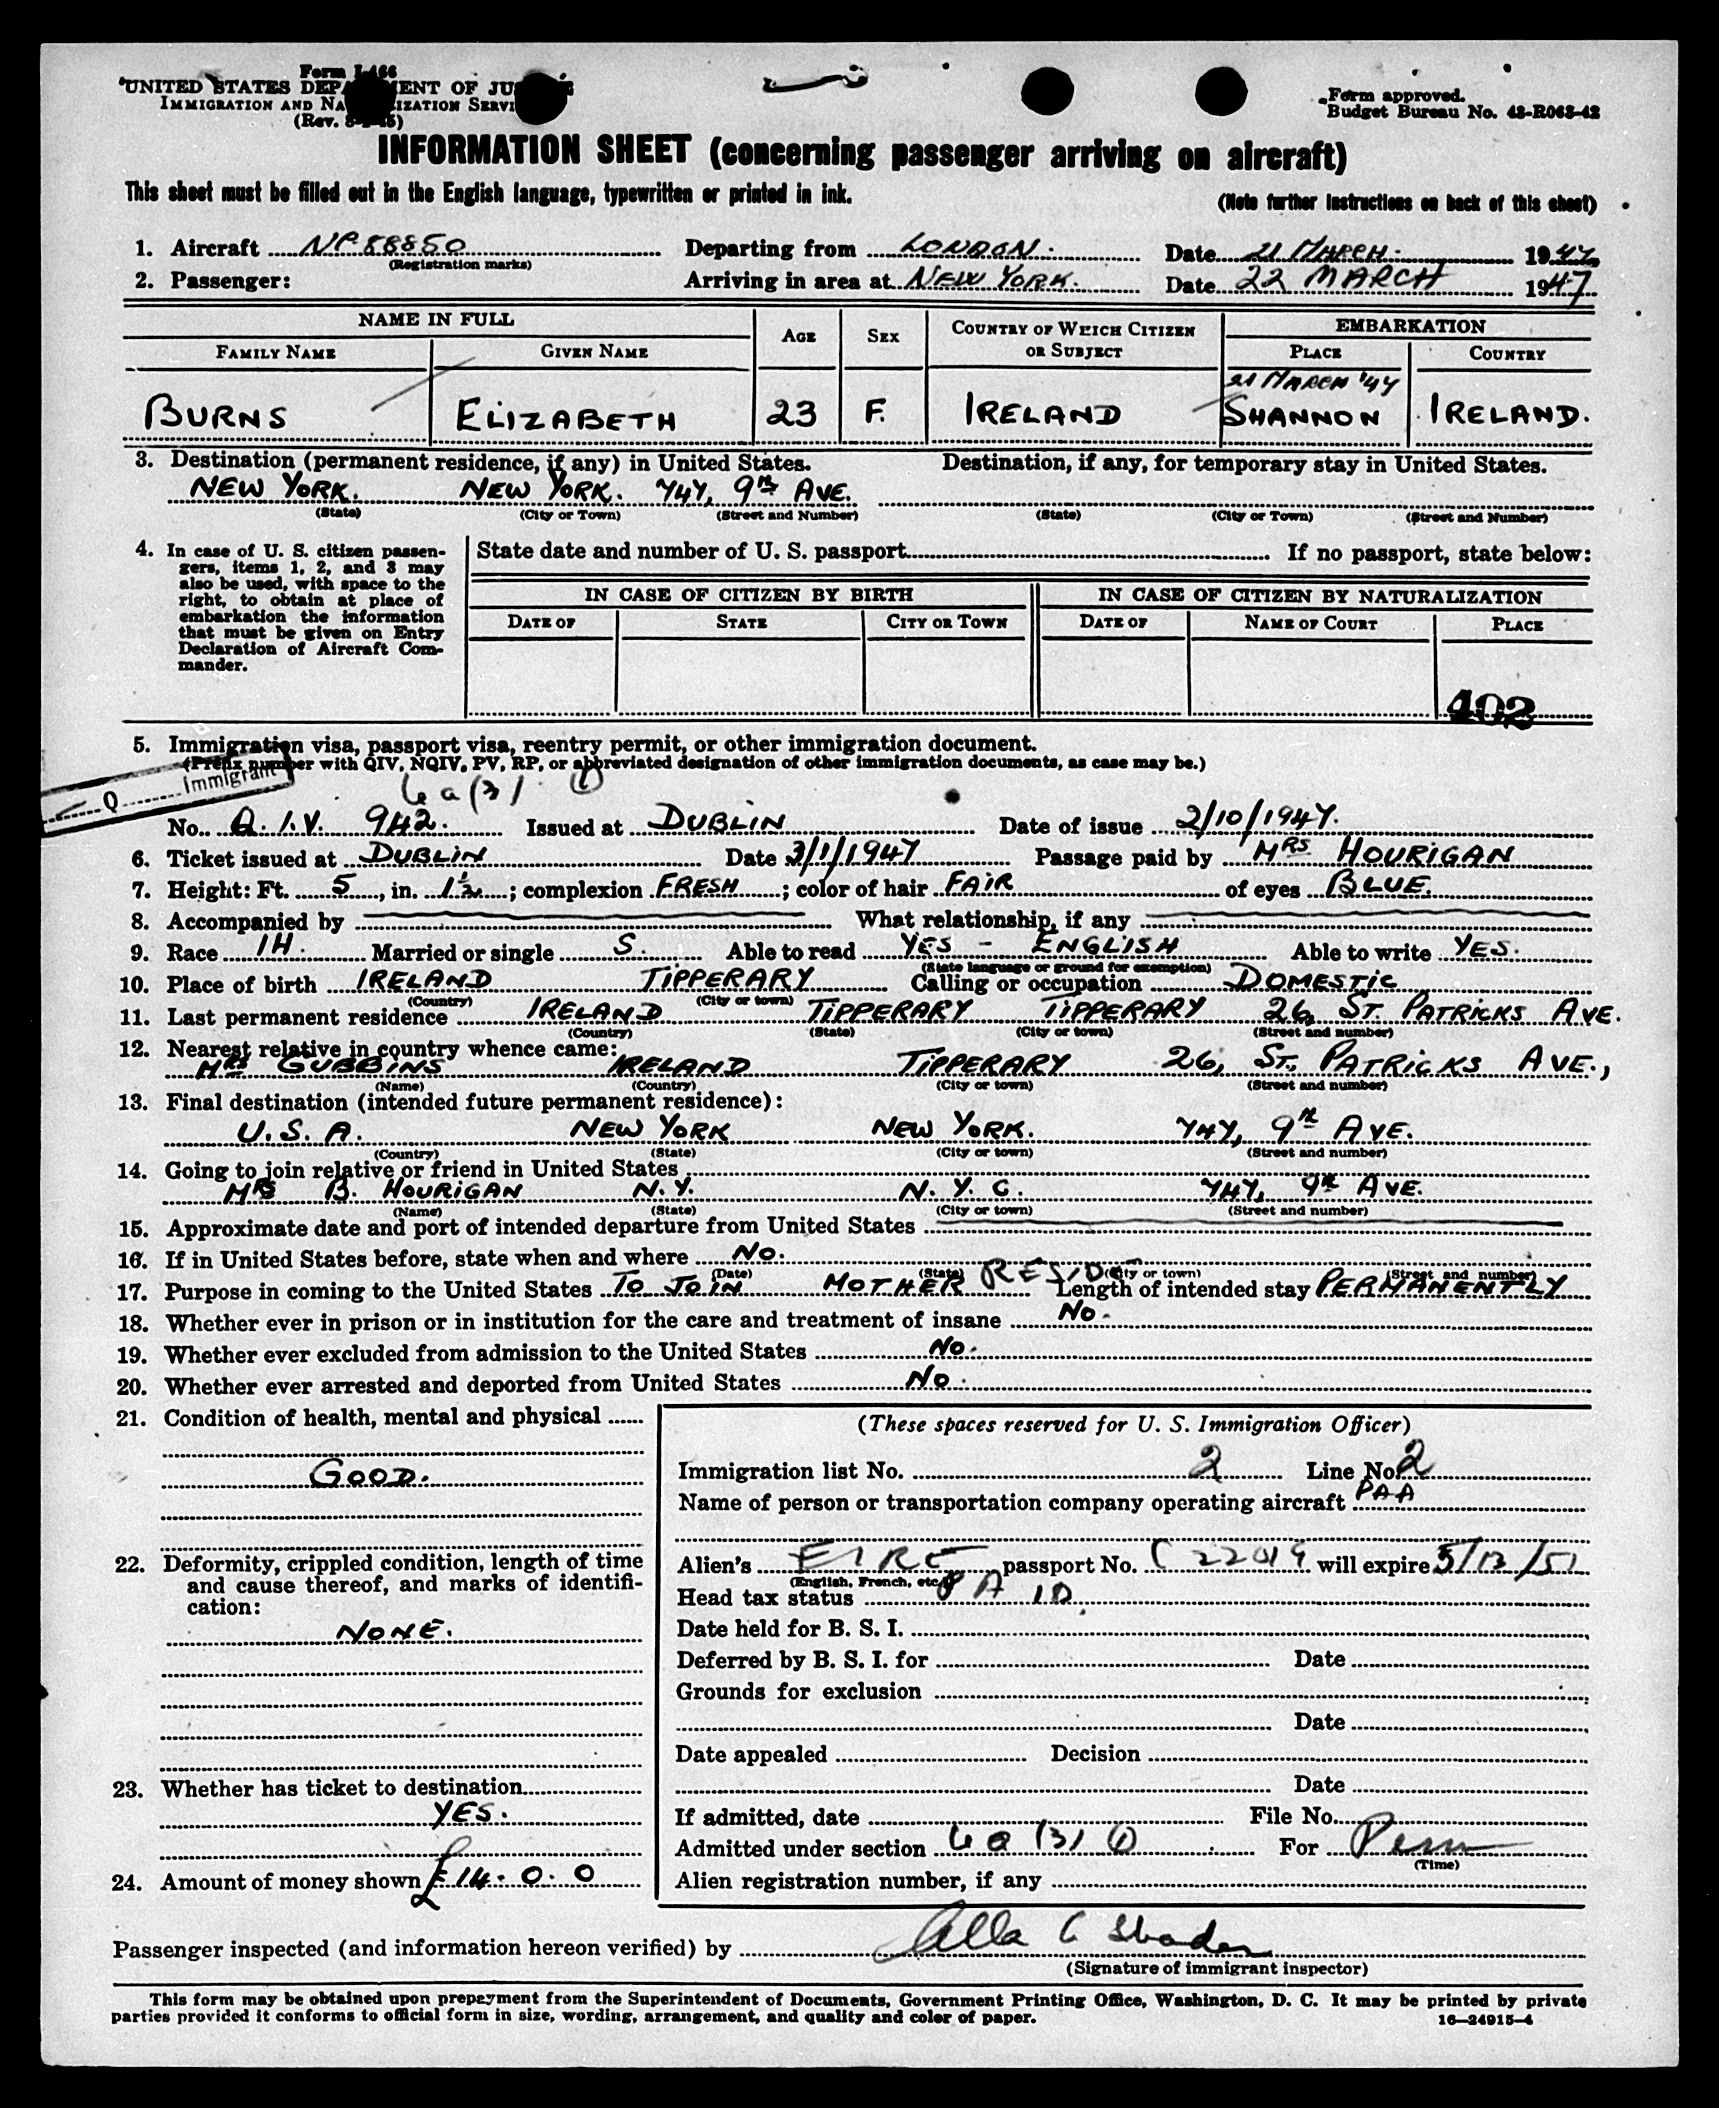 Form I-466
UNITED STATES DEPARTMENT OF JUSTICE
IMMIGRATION AND NATURALIZATION SERVICE
(Rev.
Form approved.
Budget Bureau No. 43-R063-42
INFORMATION SHEET (concerning passenger arriving on aircraft)
This sheet must be filled out in the English language, typewritten or printed in ink.
(Note further instructions on back of this sheet)
1. Aircraft NC 88850 Departing from LONDON. Date 21 MARCH. 1947
(Registration marks)
2. Passenger: Arriving in area at NEW YORK. Date 22 MARCH 1947
NAME IN FULL AGE SEX COUNTRY OF WHICH CITIZEN OR SUBJECT EMBARKATION
FAMILY NAME GIVEN NAME PLACE COUNTRY
21 MARCH '47
BURNS ELIZABETH 23 F. IRELAND SHANNON IRELAND.
3. Destination (permanent residence, if any) in United States. Destination, if any, for temporary stay in United States.
NEW YORK. NEW YORK. 747, 9th AVE.
(State) (City or Town) (Street and Number) (State) (City or Town) (Street and Number)
4. In case of U. S. citizen passen-
gers, items 1, 2, and 3 may
also be used, with space to the
right, to obtain at place of
embarkation the information
that must be given on Entry
Declaration of Aircraft Com-
mander.
State date and number of U. S. passport If no passport, state below:
IN CASE OF CITIZEN BY BIRTH IN CASE OF CITIZEN BY NATURALIZATION
DATE OF STATE CITY OR TOWN DATE OF NAME OF COURT PLACE
402
5. Immigration visa, passport visa, reentry permit, or other immigration document.
(Prefix number with QIV, NQIV, PV, RP, or abbreviated designation of other immigration documents, as case may be.)
Q Immigrant
6a(3) (1)
No. Q.I.V. 942. Issued at DUBLIN Date of issue 2/10/1947.
6. Ticket issued at DUBLIN Date 3/1/1947 Passage paid by MRS HOURIGAN
7. Height: Ft. 5, in. 1½; complexion FRESH; color of hair FAIR of eyes BLUE.
8. Accompanied by What relationship, if any
9. Race IH. Married or single S. Able to read YES - ENGLISH Able to write YES.
(State language or ground for exemption)
10. Place of birth IRELAND TIPPERARY Calling or occupation DOMESTIC
(Country) (City or town)
11. Last permanent residence IRELAND TIPPERARY TIPPERARY 26, ST. PATRICKS AVE.
(Country) (State) (City or town) (Street and number)
12. Nearest relative in country whence came:
MRS GUBBINS IRELAND TIPPERARY 26, ST. PATRICKS AVE.,
(Name) (Country) (City or town) (Street and number)
13. Final destination (intended future permanent residence):
U.S.A. NEW YORK NEW YORK. 747, 9th AVE.
(Country) (State) (City or town) (Street and number)
14. Going to join relative or friend in United States
MRS B. HOURIGAN N.Y. N.Y.C. 747, 9th AVE.
(Name) (State) (City or town) (Street and number)
15. Approximate date and port of intended departure from United States
16. If in United States before, state when and where NO.
(Date) (State) (City or town) (Street and number)
17. Purpose in coming to the United States TO JOIN MOTHER RESIDE Length of intended stay PERMANENTLY
18. Whether ever in prison or in institution for the care and treatment of insane NO.
19. Whether ever excluded from admission to the United States NO.
20. Whether ever arrested and deported from United States NO.
21. Condition of health, mental and physical
GOOD.
22. Deformity, crippled condition, length of time
and cause thereof, and marks of identifi-
cation:
NONE.
23. Whether has ticket to destination
YES.
24. Amount of money shown £14.0.0
(These spaces reserved for U. S. Immigration Officer)
Immigration list No. 2 Line No. 2
Name of person or transportation company operating aircraft PAA
Alien's EIRE passport No. C 22019 will expire 3/12/52
(English, French, etc.)
Head tax status PAID.
Date held for B. S. I.
Deferred by B. S. I. for Date
Grounds for exclusion
Date
Date appealed Decision
Date
If admitted, date File No.
Admitted under section 6a(3) (1) For Perm
(Time)
Alien registration number, if any
Passenger inspected (and information hereon verified) by
(Signature of immigrant inspector)
This form may be obtained upon prepayment from the Superintendent of Documents, Government Printing Office, Washington, D. C. It may be printed by private
parties provided it conforms to official form in size, wording, arrangement, and quality and color of paper.
16—24915-4